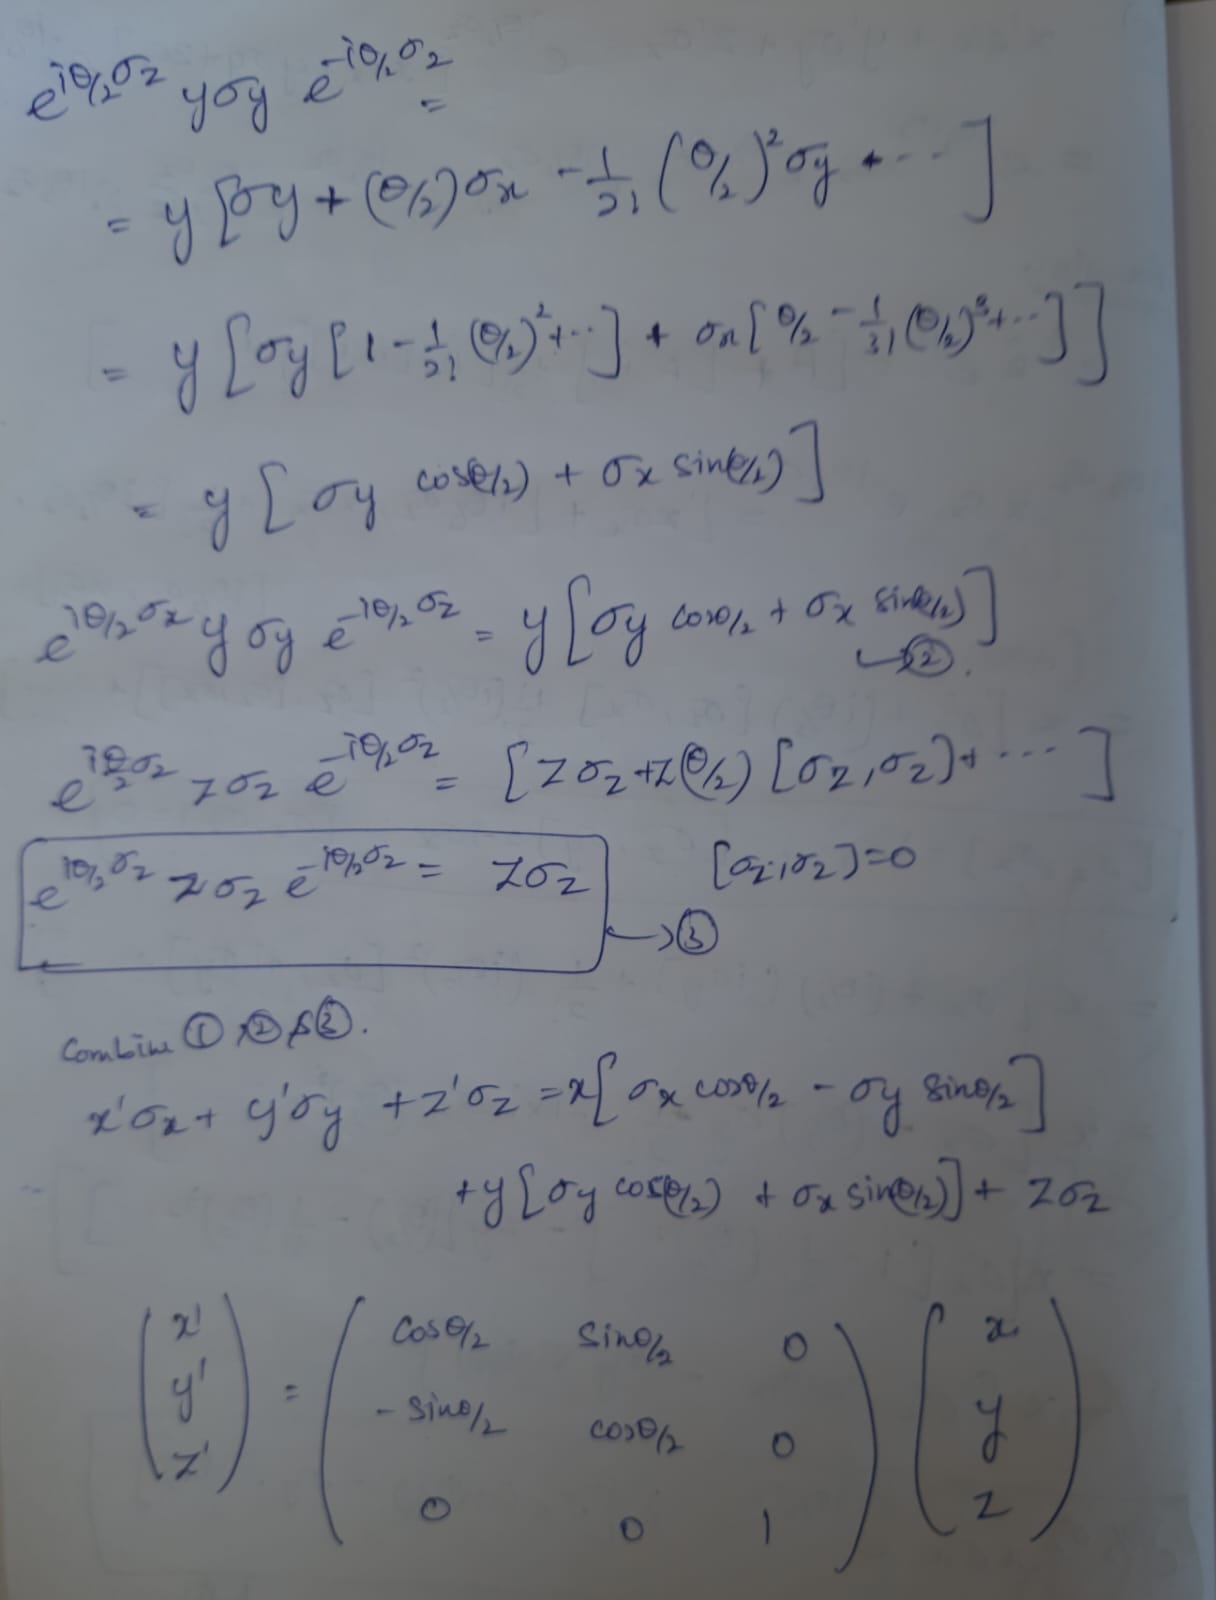 e^{iθ/2 σz} yσy e^{-iθ/2 σz} =
= y [σy + (θ/2)σx - 1/2! (θ/2)² σy + ... ]
= y [σy [1 - 1/2! (θ/2)² + ..] + σx [θ/2 - 1/3! (θ/2)³ + ...]]
= y [σy cos(θ/2) + σx sin(θ/2)]
e^{iθ/2 σz} y σy e^{-iθ/2 σz} = y [σy cosθ/2 + σx sin(θ/2)]
→ ②.
e^{iθ/2 σz} zσz e^{-iθ/2 σz} = [zσz + z(θ/2) [σz, σz] + ... ]
e^{iθ/2 σz} zσz e^{-iθ/2 σz} = zσz [σz, σz] = 0
→ ③
Combine ① , ② & ③.
x'σx + y'σy + z'σz = x[σx cosθ/2 - σy sinθ/2]
+ y [σy cos(θ/2) + σx sin(θ/2)] + zσz
(x' = (cosθ/2 sinθ/2 0) (x
y' - sinθ/2 cosθ/2 0 y
z') 0 0 1 z)